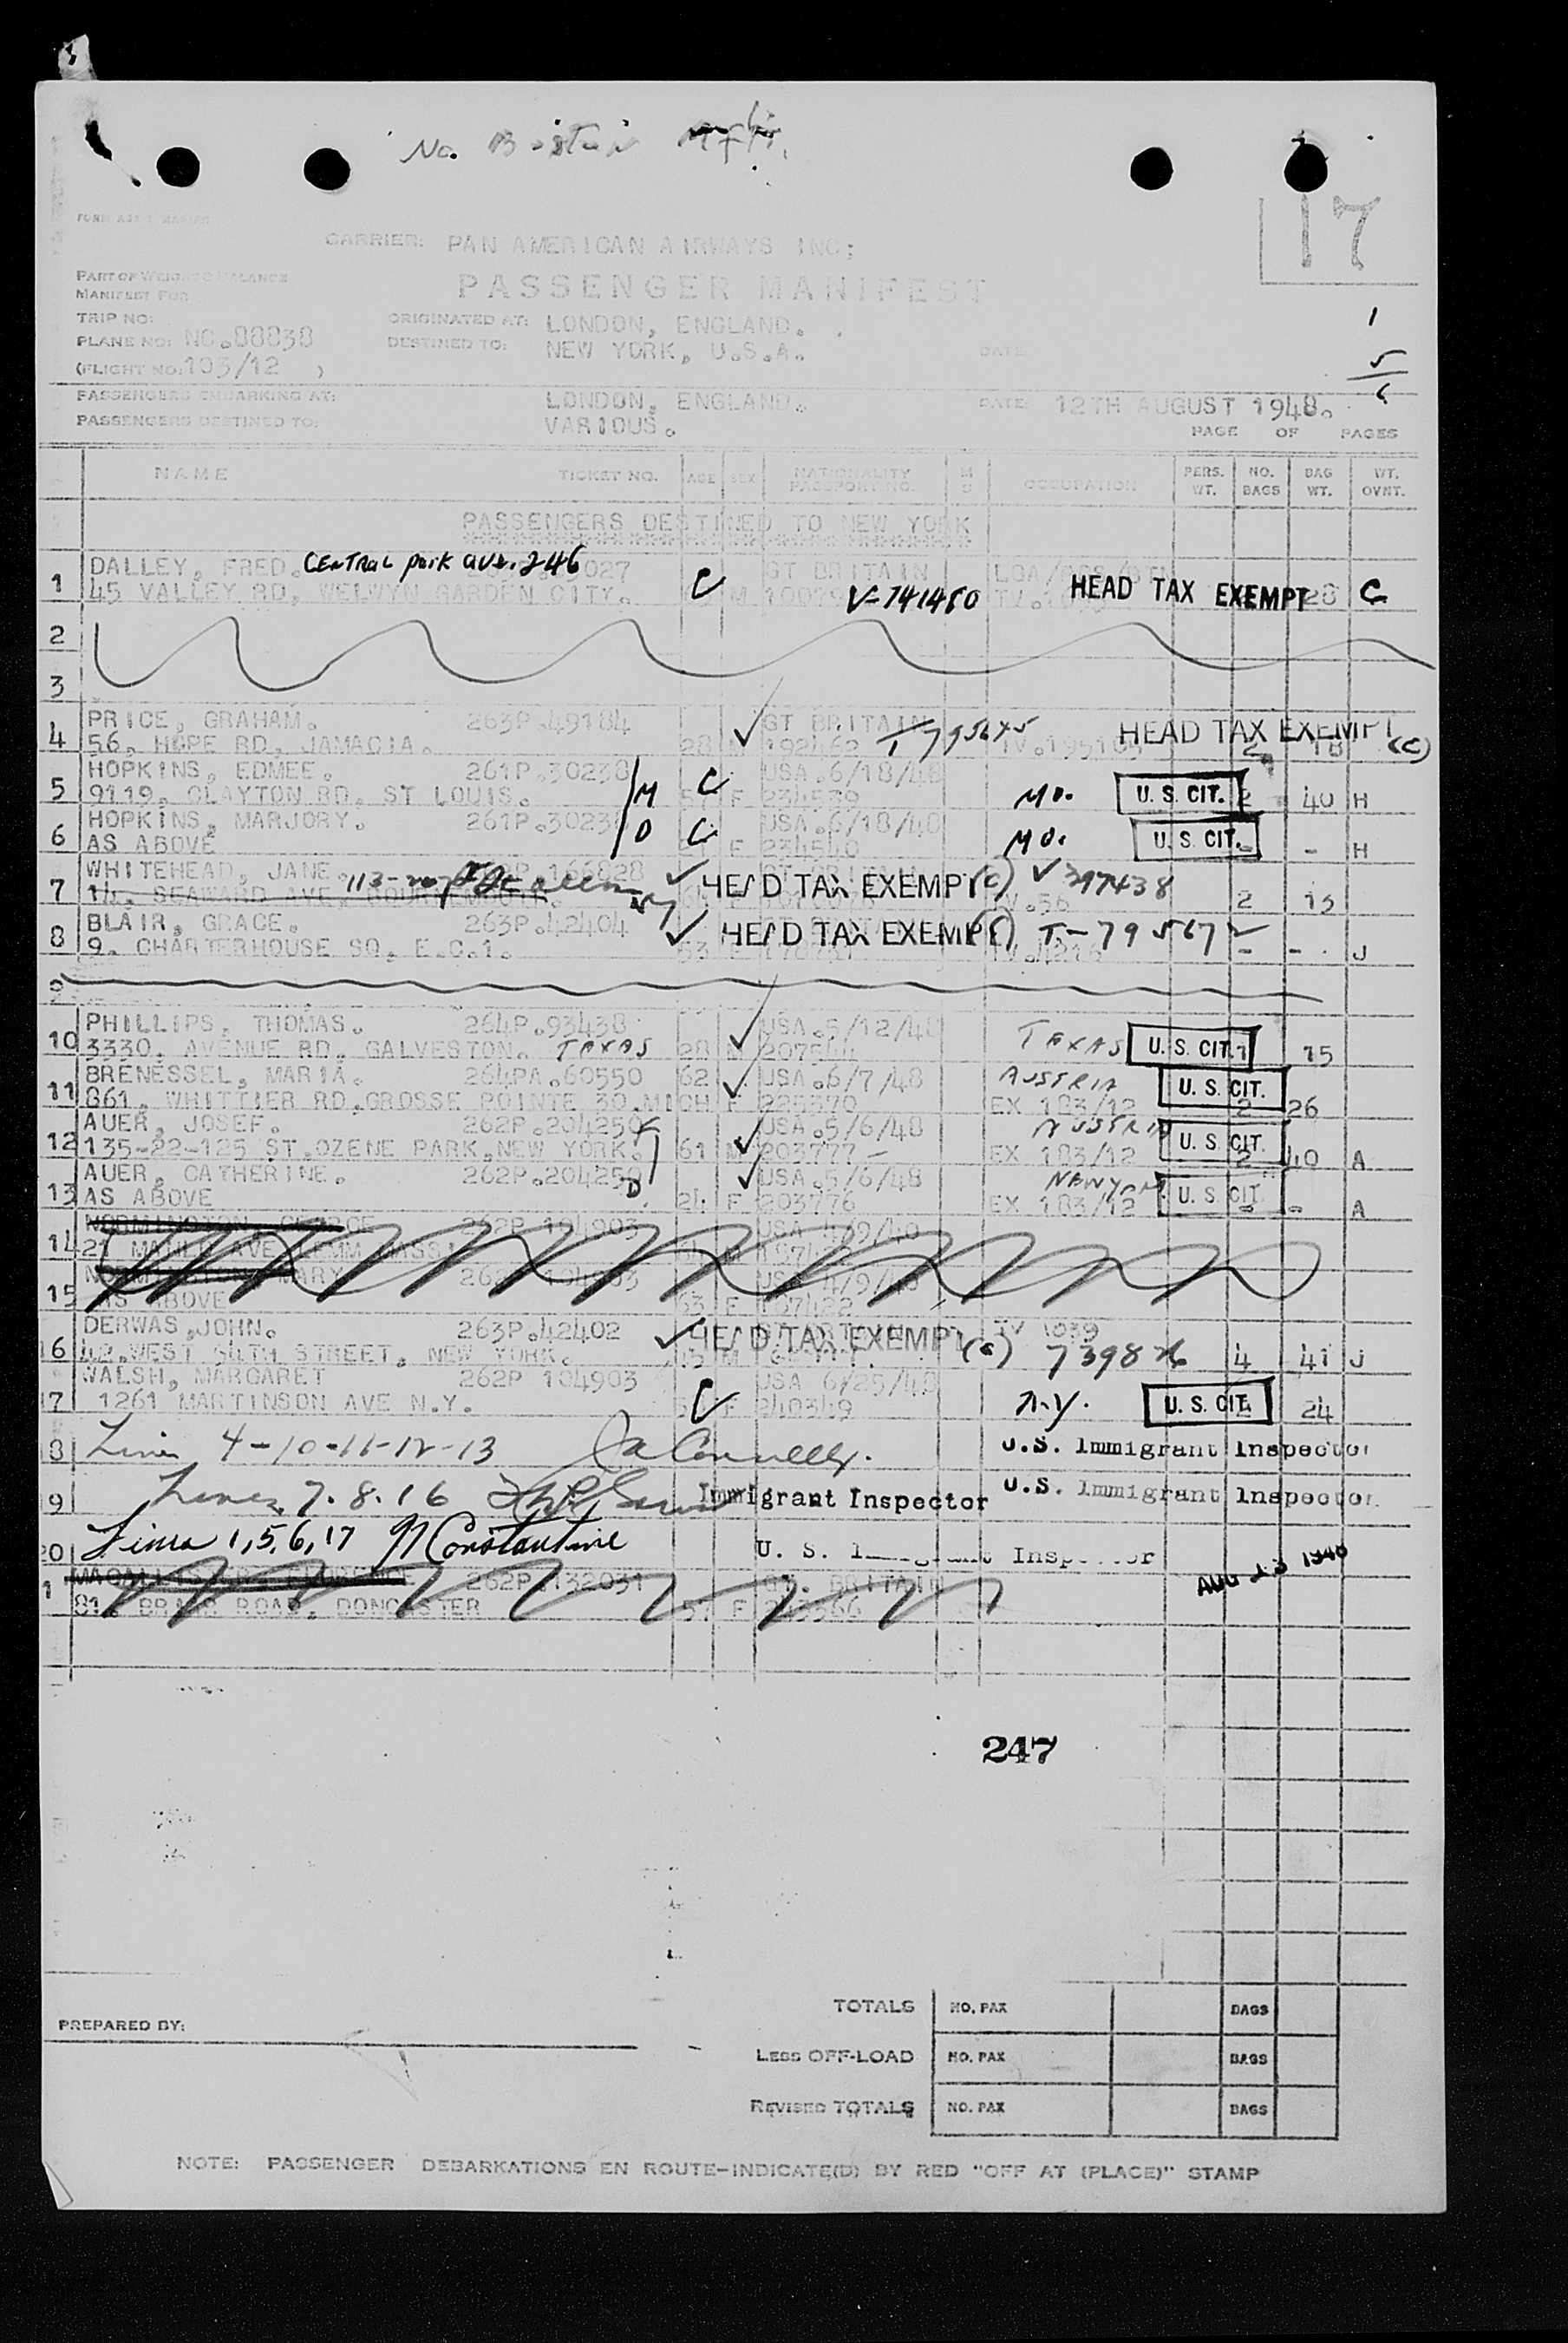 No. Boston
17
CARRIER: PAN AMERICAN AIRWAYS INC;
PART OF WEIGHT & BALANCE
MANIFEST FOR
PASSENGER MANIFEST
1
5
6
TRIP NO:
ORIGINATED AT: LONDON, ENGLAND.
PLANE NO: NC.88838
DESTINED TO: NEW YORK, U.S.A. DATE
(FLIGHT NO: 103/12 )
PASSENGERS EMBARKING AT: LONDON, ENGLAND. DATE: 12TH AUGUST 1948.
PASSENGERS DESTINED TO: VARIOUS.
PAGE OF PAGES
NAME TICKET NO. AGE SEX NATIONALITY PASSPORT NO. OCCUPATION PERS. WT. NO. BAGS BAG WT. WT. OVNT.
PASSENGERS DESTINED TO NEW YORK
1 DALLEY, FRED. CENTRAL Park ave. 246 C GT BRITAIN HEAD TAX EXEMPT 28 C
45 VALLEY RD, WELWYN GARDEN CITY. M V-741480
2
3
4 PRICE, GRAHAM. 263P.49184 GT BRITAIN HEAD TAX EXEMPT (C)
56, HOPE RD, JAMACIA. 28 M 192462 2 18
5 HOPKINS, EDMEE. 261P.30238 M C USA.6/18/48 MO. U. S. CIT.
9119, CLAYTON RD, ST LOUIS. 57 F 234539 2 40 H
6 HOPKINS, MARJORY. 261P.3023 D C USA.6/18/48 MO. U. S. CIT.
AS ABOVE F 234540 - - H
7 WHITEHEAD, JANE. 166828 HEAD TAX EXEMPT (C) 397438
14, SEAWARD AVE, BOURNEMOUTH. 113- IV.56 2 15
8 BLAIR, GRACE. 263P.42404 HEAD TAX EXEMPT (C) T-795672
9, CHARTERHOUSE SQ, E.C.1. 53 - - J
9
10 PHILLIPS, THOMAS. 264P.93438 USA.5/12/48 TEXAS U. S. CIT.
3330, AVENUE RD, GALVESTON. TEXAS 28 M 207544 1 15
11 BRENESSEL, MARIA. 264PA.60550 62 USA.6/7/48 AUSTRIA U. S. CIT.
861, WHITTIER RD,GROSSE POINTE 30,MICH F 225370 EX 183/12 2 26
12 AUER, JOSEF. 262P.204250 USA.5/6/48 AUSTRIA U. S. CIT.
135-22-125 ST.OZENE PARK,NEW YORK. 61 M 203777 EX 183/12 2 40 A
13 AUER, CATHERINE. 262P.204250 D USA.5/6/48 NEW YORK U. S. CIT.
AS ABOVE 24 F 203776 EX 183/12 - - A
14 262P 104903 USA 4/9/48
21
15 MARY 262P 104903 USA 4/9/48
AS ABOVE 63 F 187422
16 DERWAS,JOHN. 263P.42402 HEAD TAX EXEMPT IV 1039
42,WEST 54TH STREET, NEW YORK. M (C) 4 41 J
17 WALSH, MARGARET 262P 104903 C USA 6/25/48 N.Y. U. S. CIT.
1261 MARTINSON AVE N.Y. F 240349 24
18 Lines 4-10-11-12-13 Connelly. U.S. Immigrant Inspector
19 Lines 7.8.16 Immigrant Inspector U.S. Immigrant Inspector
20 Lines 1,5,6,17 Constantine U. S. Immigrant Inspector
AUG 13 1948
1 262P.132031 GT. BRITAIN
81, ROAD, DONCASTER F
247
TOTALS NO. PAX BAGS
PREPARED BY:
LESS OFF-LOAD NO. PAX BAGS
REVISED TOTALS NO. PAX BAGS
NOTE: PASSENGER DEBARKATIONS EN ROUTE-INDICATE(D) BY RED "OFF AT (PLACE)" STAMP